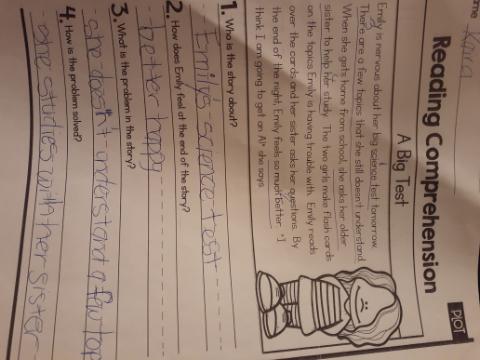 ame Kaira
Reading Comprehension
PLOT
A Big Test
Emily is nervous about her big science test tomorrow.
There are a few topics that she still doesn't understand.
When she gets home from school, she asks her older
sister to help her study. The two girls make flash cards
on the topics Emily is having trouble with. Emily reads
over the cards and her sister asks her questions. By
the end of the night, Emily feels so much better. "I
think I am going to get an A!" she says.
1. Who is the story about?
Emily's science test
2. How does Emily feel at the end of the story?
better happy
3. What is the problem in the story?
she doesn't understand a few top
4. How is the problem solved?
she studies with her sister